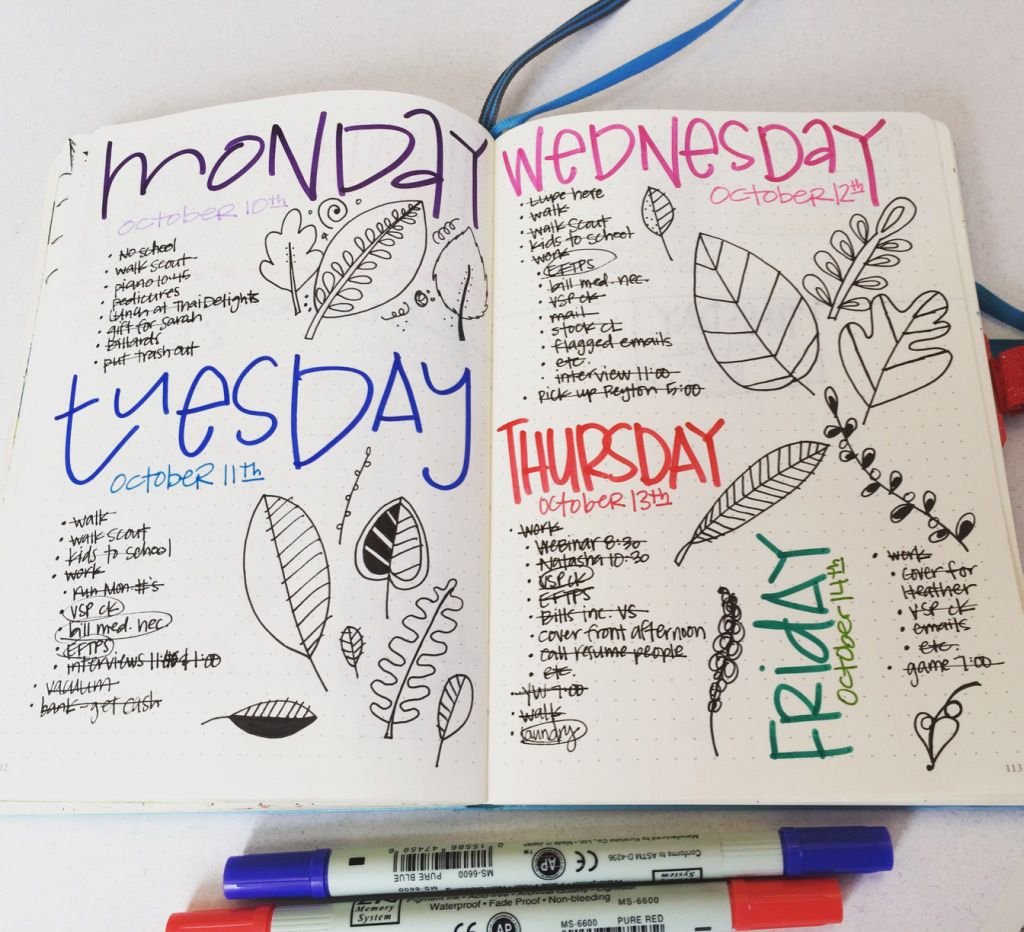 monDay
October 10th
• No school
• walk scout
• piano 10:45
• pedicures
• Lunch at Thai Delights
• gift for Sarah
• Billards
• put trash out
tuesDAy
October 11th
• walk
• walk scout
• kids to school
• work
• run Mon #'s
• VSP ck
• bill med. nec
• EFTPS
• interviews 1:00
• vacuum
• bank - get cash
12
WeDNesDay
October 12th
• Lupe here
• walk
• walk scout
• kids to school
• work
• EFTPS
• bill med. nec.
• VSP ck
• mail
• stock CL
• flagged emails
• etc.
• interview 11:00
• pick up Peyton 5:00
THURSDAY
October 13th
• work
• Webinar 8:30
• Natasha 10:30
• VSP ck
• EFTPS
• Bills inc. VS
• cover front afternoon
• call resume people
• etc.
• YW 7:00
• walk
• laundry
FRiDAY
October 14th
• work
• cover for
Heather
• VSP ck
• emails
• etc.
• game 7:00
113
MS-6600 PURE BLUE
0 15586 47459 6
TM
AP
CE
Manufactured by Kuretake Co., Ltd. - Made in Japan
Conforms to ASTM D-4236
System
ZIG
Memory
System
Waterproof • Fade Proof • Non-bleeding
CE
AP
MS-6600 PURE RED